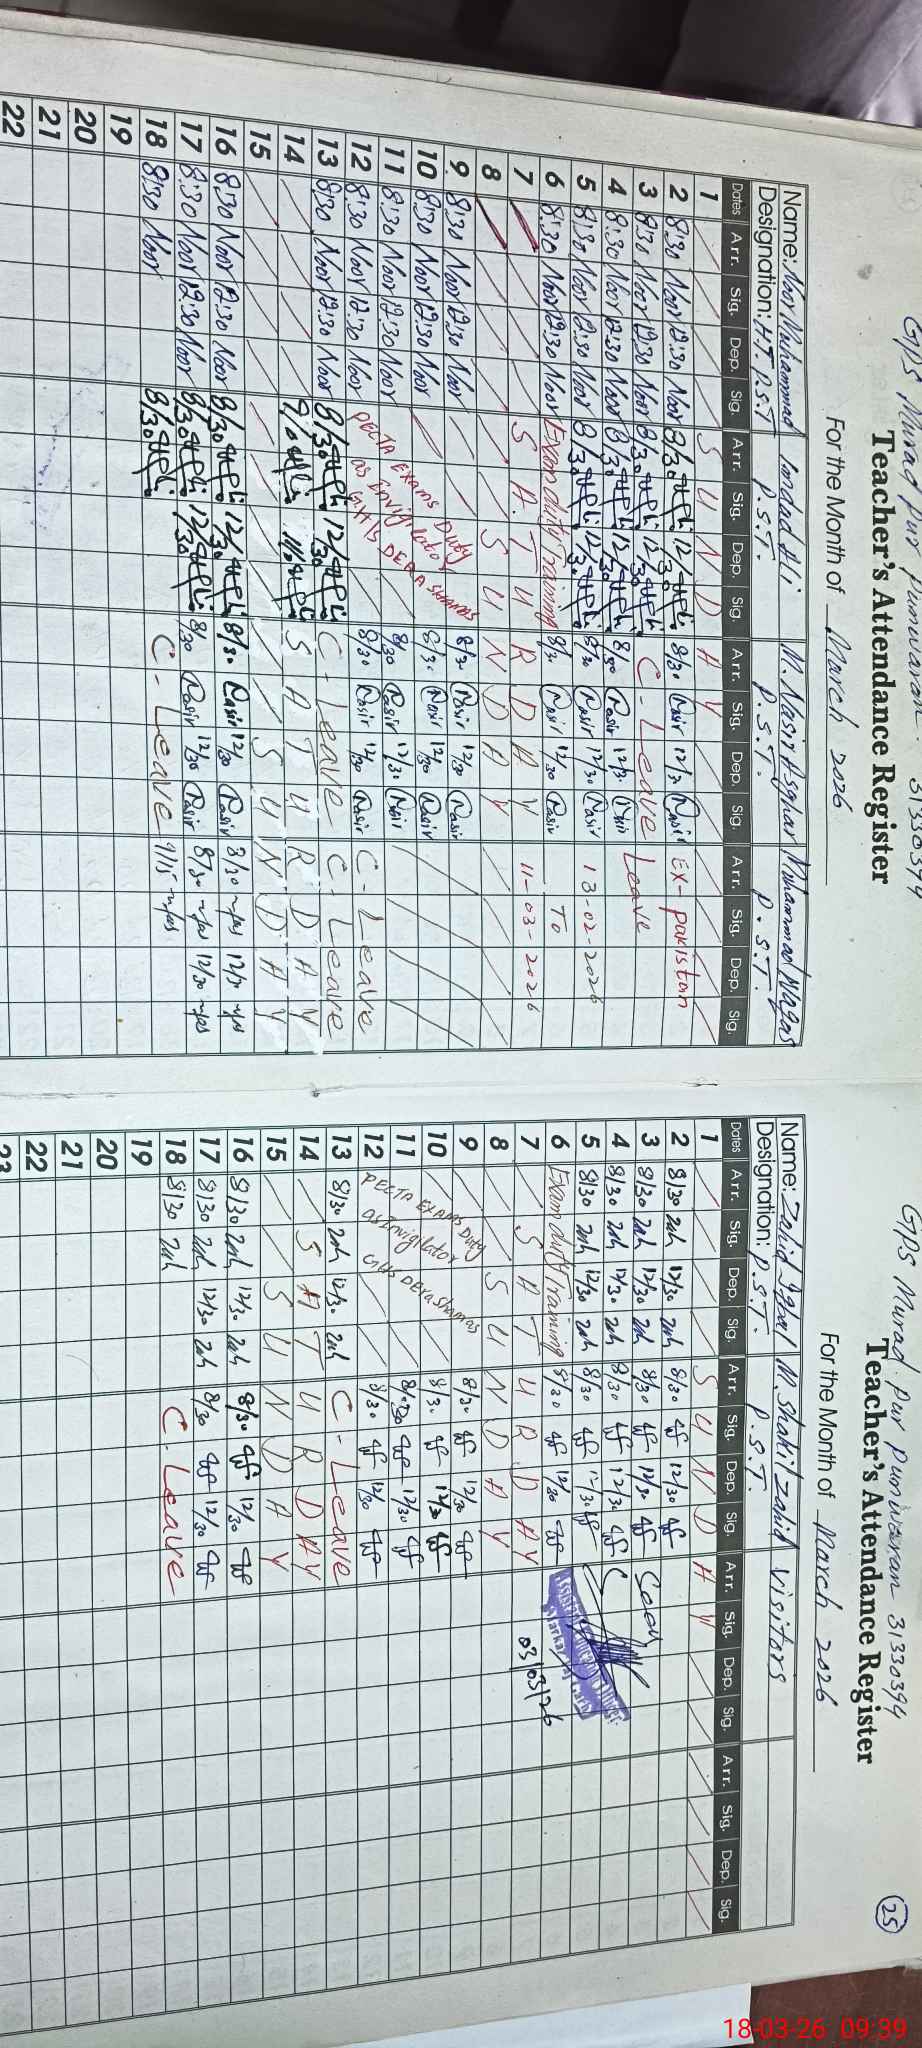 GPS Murad Pur Punwaran. 31330394
Teacher's Attendance Register
For the Month of March 2026
Name: Noor Muhammad Imdad Ali M. Nasir Asghar Muhammad Waqas
Designation: H.T. P.S.T P.S.T. P.S.T. P.S.T.
Dates Arr. Sig. Dep. Sig. Arr. Sig. Dep. Sig. Arr. Sig. Dep. Sig. Arr. Sig. Dep. Sig.
1 S U N D A Y
2 8:30 Noor 12:30 Noor 8/30 12/30 8/30 Nasir 12/30 Nasir EX-pakistan
3 8:30 Noor 12:30 Noor 8/30 12/30 C-Leave Leave
4 8:30 Noor 12:30 Noor 8/30 12/30 8/30 Nasir 12/30
5 8:30 Noor 12:30 Noor 8/30 12/30 8/30 Nasir 12/30 Nasir 13-02-2026
6 8:30 Noor 12:30 Noor Exam duty Training 8/30 Nasir 12/30 Nasir To
7 S A T U R D A Y 11-03-2026
8 S U N D A Y
9 8:30 Noor 12:30 Noor 8/30 Nasir 12/30 Nasir
10 8:30 Noor 12:30 Noor 8/30 Nasir 12/30 Nasir
11 8:30 Noor 12:30 Noor PECTA EXAMS Duty 8/30 Nasir 12/30 Nasir
12 8:30 Noor 12:30 Noor as Envigilator GHS DERA SHAMAS 8/30 Nasir 12/30 Nasir C-Leave
13 8:30 Noor 12:30 Noor 8/30 12/30 C-Leave C-Leave
14 S A T U R D A Y
15 S U N D A Y
16 8:30 Noor 12:30 Noor 8/30 12/30 8/30 Nasir 12/30 Nasir 8/30 12/30
17 8:30 Noor 12:30 Noor 8/30 12/30 8/30 Nasir 12/30 Nasir 8/30 12/30
18 8:30 Noor 8/30 C-Leave 9/15
19
20
21
22
25
GPS Murad Pur Punwaran 31330394
Teacher's Attendance Register
For the Month of March 2026
Name: Zahid Iqbal M. Shakil Zahid Visitors
Designation: P.S.T. P.S.T.
Dates Arr. Sig. Dep. Sig. Arr. Sig. Dep. Sig. Arr. Sig. Dep. Sig. Arr. Sig. Dep. Sig.
1 S U N D A Y
2 8/30 12/30 8/30 12/30
3 8/30 12/30 8/30 12/30 Seen
4 8/30 12/30 8/30 12/30
5 8/30 12/30 8/30 12/30
6 Exam duty Training 8/30 12/30
7 S A T U R D A Y 03/03/26
8 S U N D A Y
9 8/30 12/30
10 8/30 12/30
11 PECTA EXAMS Duty 8/30 12/30
12 as Invigilator GHS DERA Shamas 8/30 12/30
13 8/30 12/30 C-Leave
14 S A T U R D A Y
15 S U N D A Y
16 8/30 12/30 8/30 12/30
17 8/30 12/30 8/30 12/30
18 8/30 C-Leave
19
20
21
22
23
18-03-26 09:39